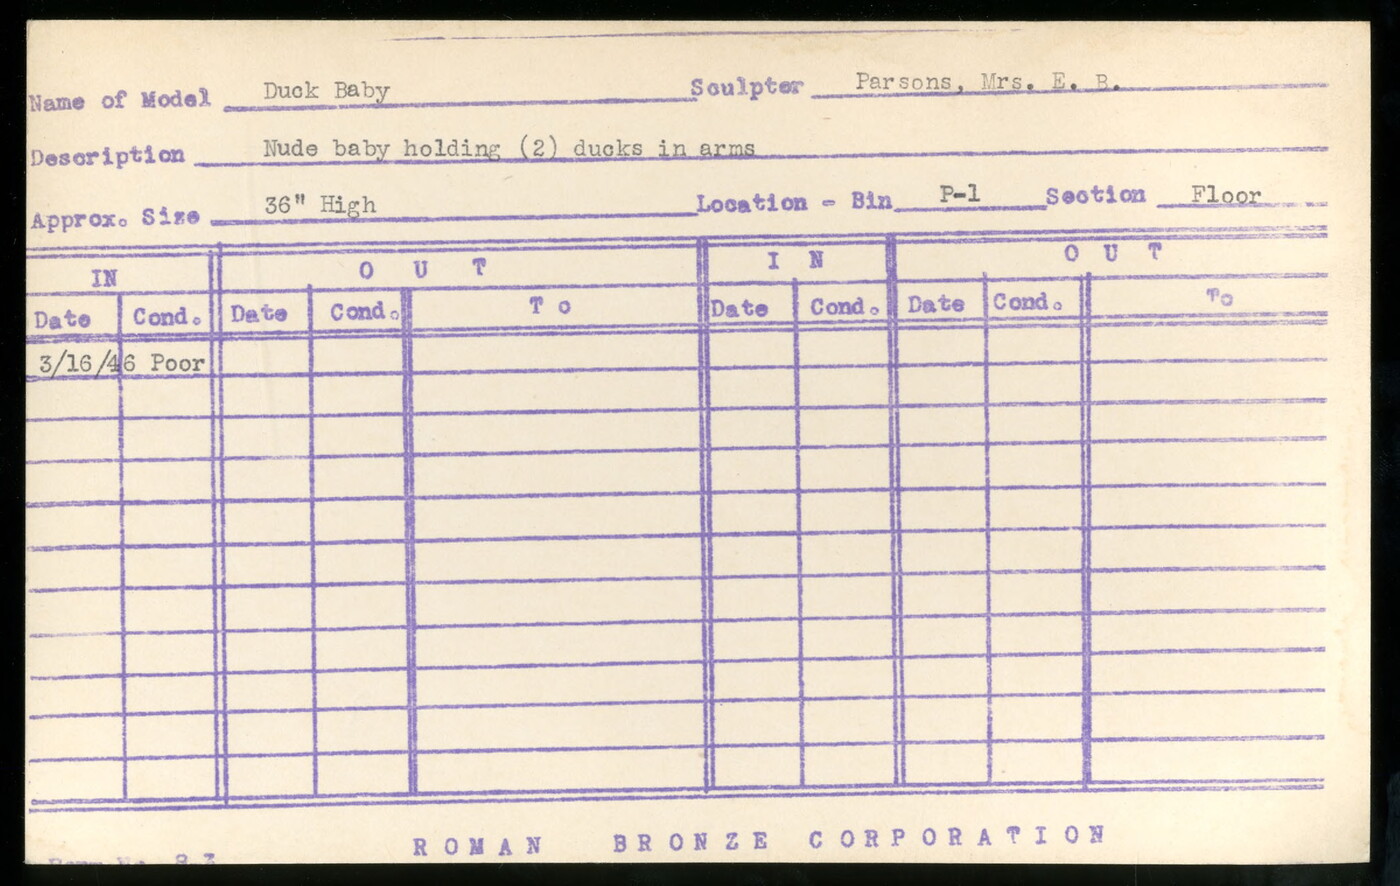 Name of Model Duck Baby Sculptor Parsons, Mrs. E. B.
Description Nude baby holding (2) ducks in arms
Approx. Size 36" High Location - Bin P-1 Section Floor
IN OUT IN OUT
Date Cond. Date Cond. To Date Cond. Date Cond. To
3/16/46 Poor
ROMAN BRONZE CORPORATION
Form No. 83